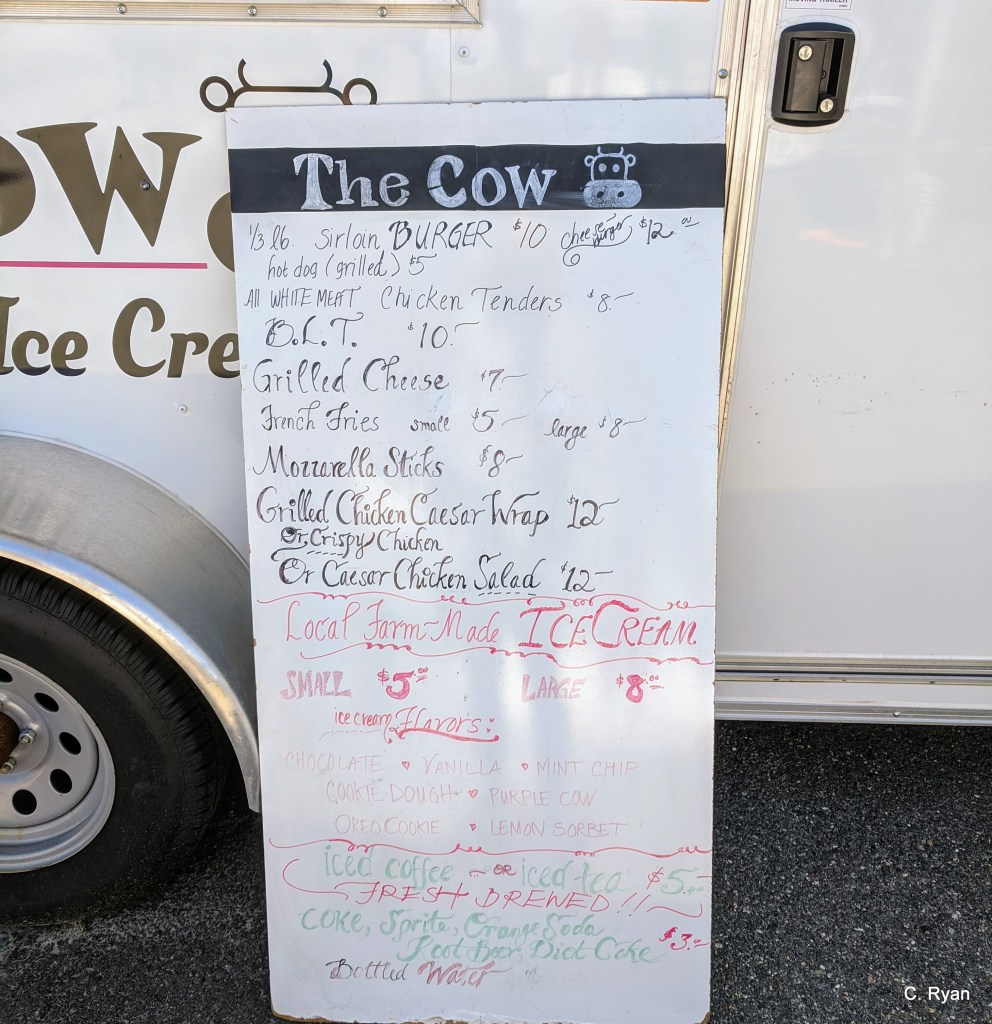 MOVING TRAILER
OW
Ice Cre
The Cow
1/3 lb. Sirloin BURGER $10 cheeseburger $12.00
hot dog (grilled) $5
All WHITE MEAT Chicken Tenders $8.—
B.L.T. $10.—
Grilled Cheese $7.—
French Fries small $5— large $8—
Mozzarella Sticks $8—
Grilled Chicken Caesar Wrap $12—
Or Crispy Chicken
Or Caesar Chicken Salad $12—
Local Farm-Made ICE CREAM
SMALL $5.00 LARGE $8.00
ice cream Flavors:
CHOCOLATE ♥ VANILLA ♥ MINT CHIP
COOKIE DOUGH ♥ PURPLE COW
OREO COOKIE ♥ LEMON SORBET
iced coffee — OR iced tea $5.—
FRESH BREWED!!
COKE, Sprite, Orange Soda
Root Beer, Diet Coke $3.00
Bottled Water
C. Ryan